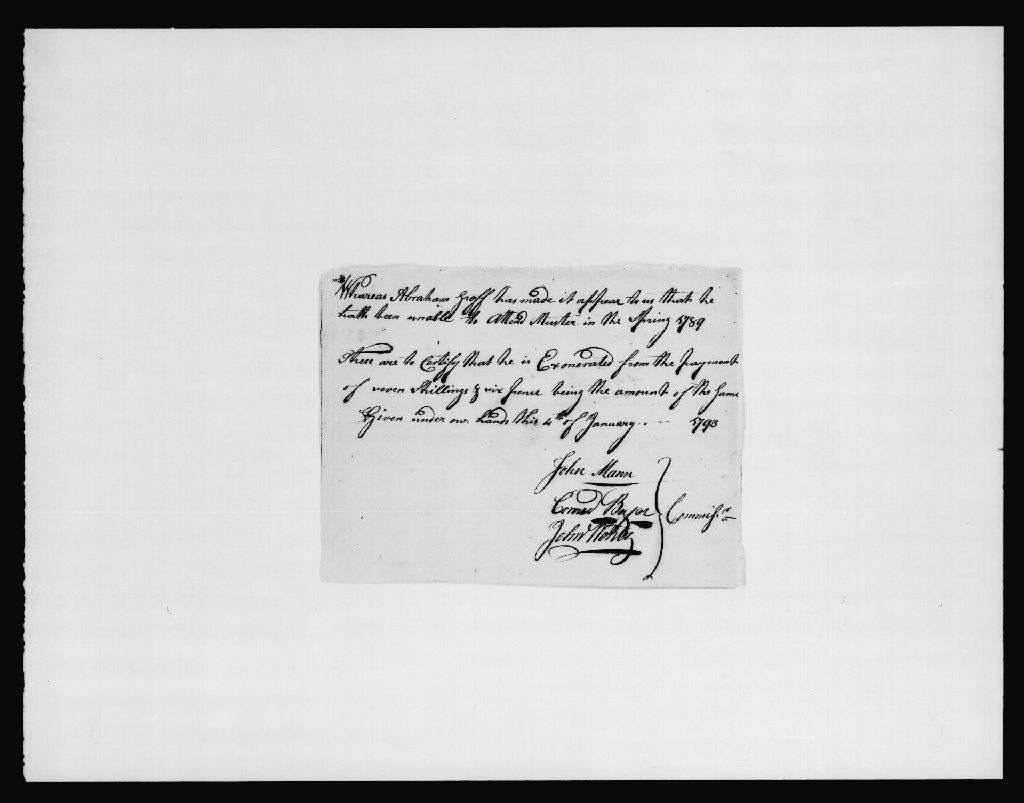 Whareas Abraham Groff has made it appear to us that he
hath been unable to Attend Muster in the Spring 1789
These are to Certify that he is Exonerated from the payment
of seven Shillings & six pence being the amount of the Same
Given under our hands this 4th of January 1793
John Mann
Conrad
John
Commisrs